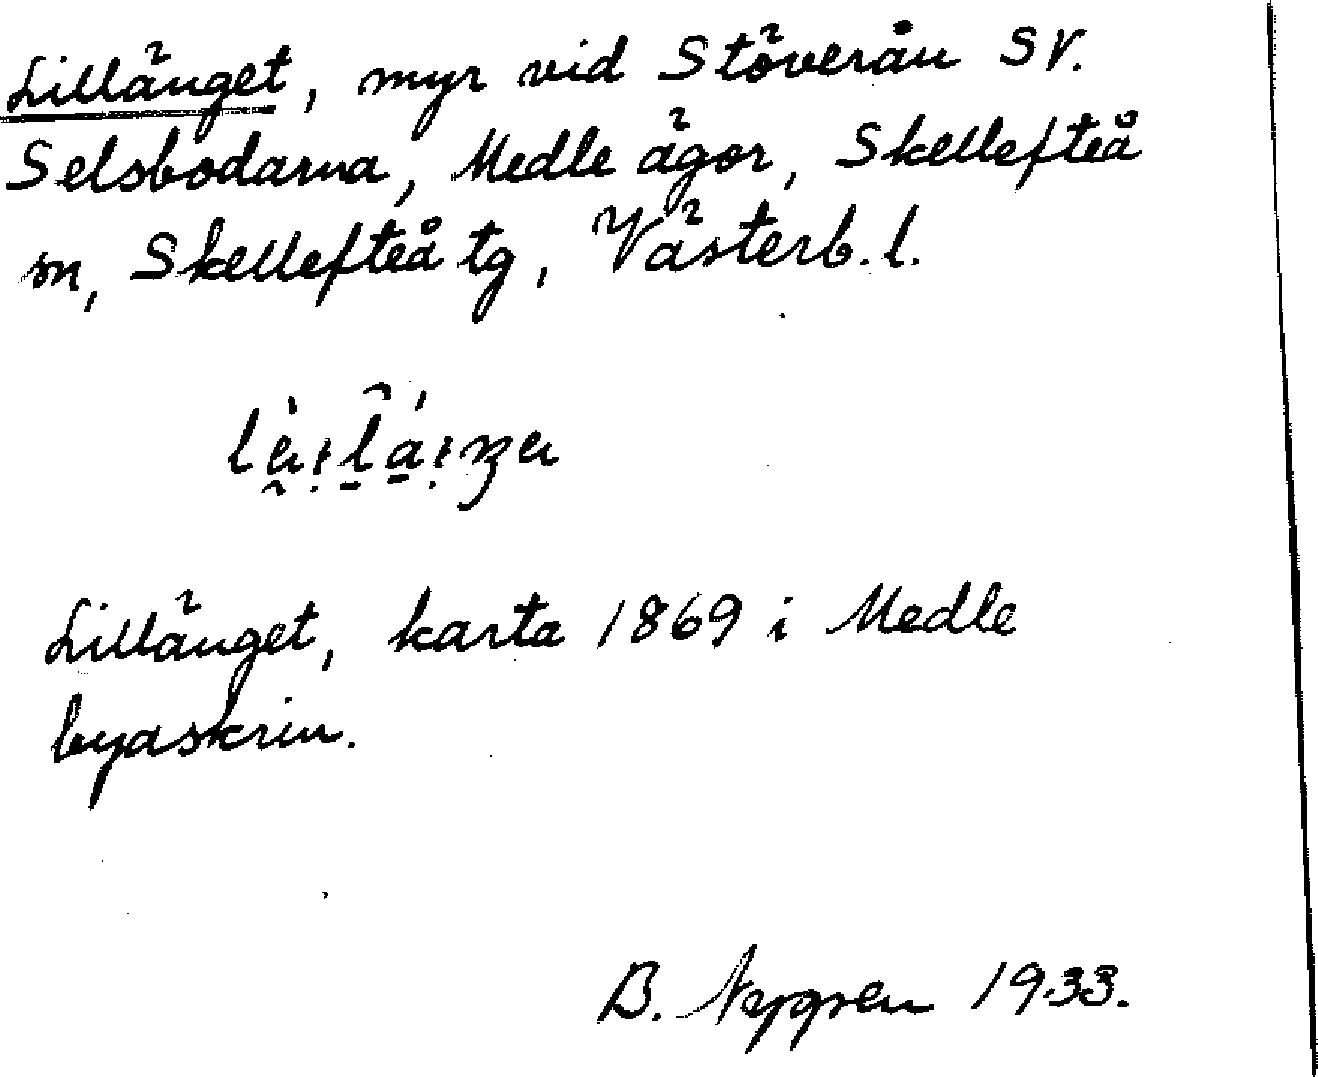 Lillänget, myr vid Stöverån SV.
Selsbodarna, Medle ägor, Skellefteå
sn, Skellefteå tg, Västerb. l.
Lillänget, karta 1869 i Medle
byaskrin.
B. 1933.